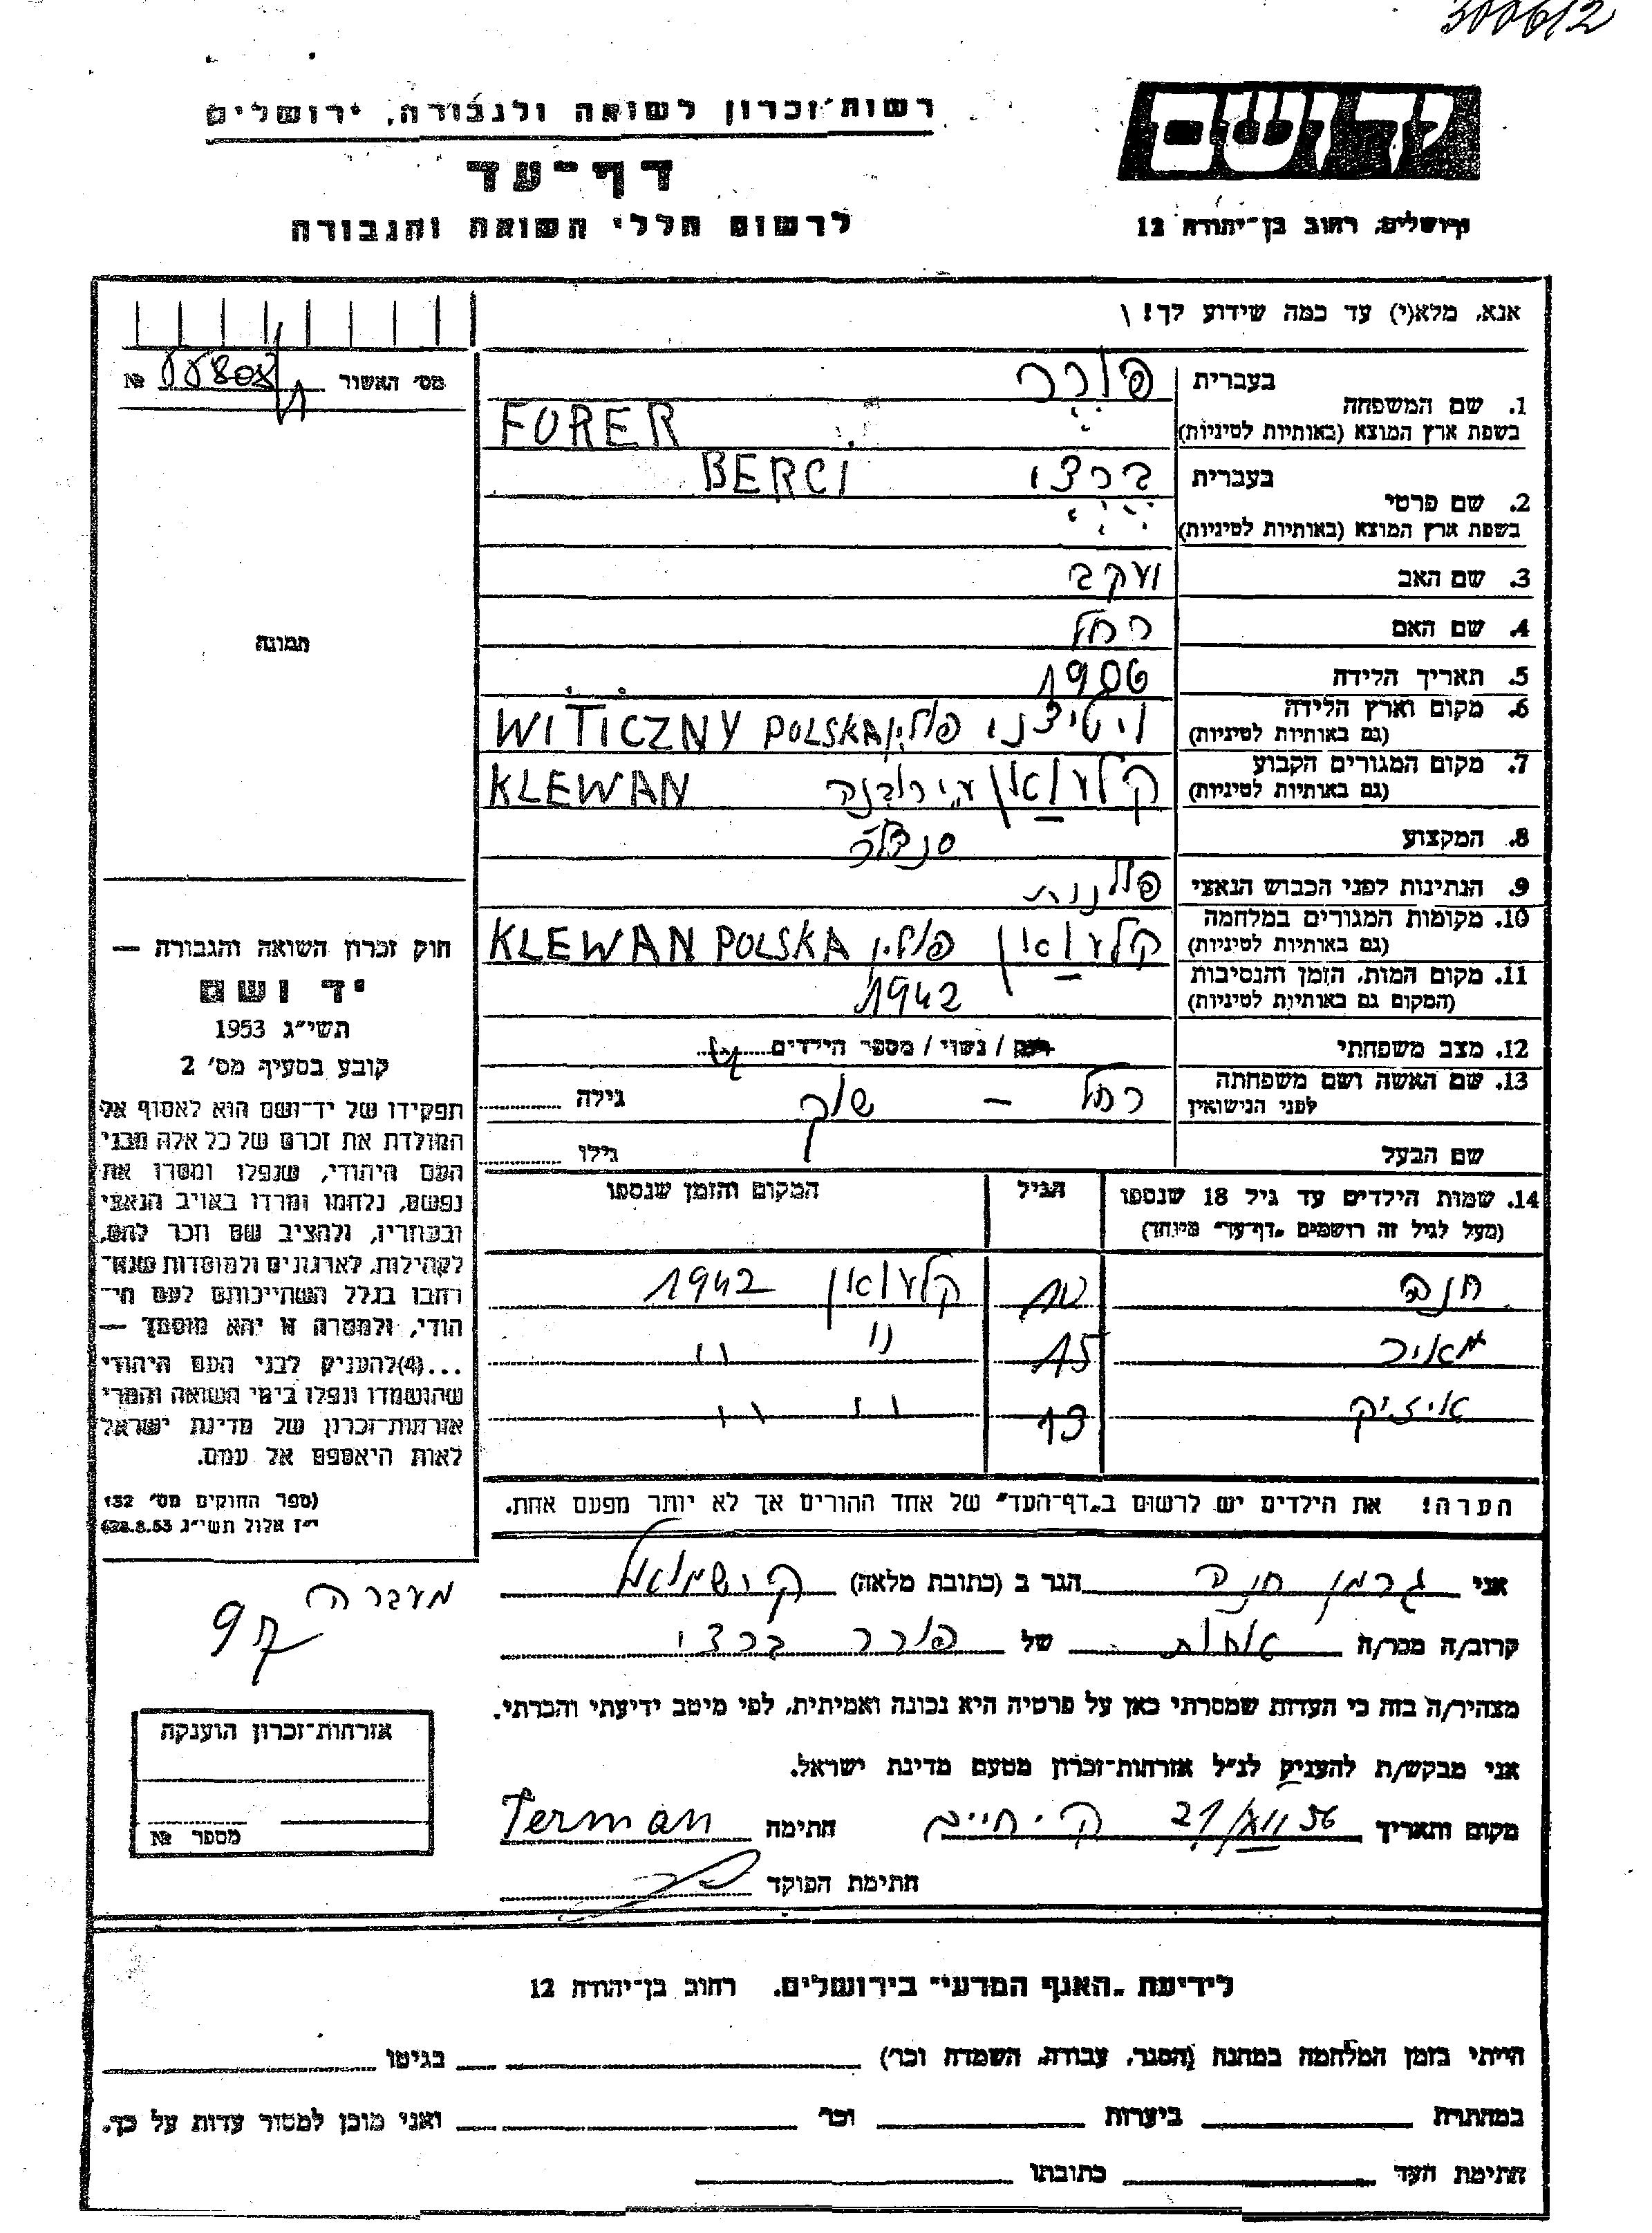 300612
רשות־זכרון לשואה ולגבורה, ירושלים
ידושם
דף־עד
לרשום חללי השואה והגבורה
ירושלים, רחוב בן־יהודה 12
אנא, מלא(י) עד כמה שידוע לך!
מס׳ האשור №
1. שם המשפחה
בעברית פורר
בשפת ארץ המוצא (באותיות לטיניות) FORER
2. שם פרטי
בעברית ברצי BERCI
בשפת ארץ המוצא (באותיות לטיניות)
3. שם האב יעקב
4. שם האם רחל
תמונה
5. תאריך הלידה 1906
6. מקום וארץ הלידה ויטיצני פולין WITICZNY POLSKA
(גם באותיות לטיניות)
7. מקום המגורים הקבוע קלעוואן ע״י רובנה KLEWAN
(גם באותיות לטיניות)
8. המקצוע סנדלר
9. הנתינות לפני הכבוש הנאצי פולנית
10. מקומות המגורים במלחמה קלעוואן פולין KLEWAN POLSKA
(גם באותיות לטיניות)
11. מקום המות, הזמן והנסיבות
(המקום גם באותיות לטיניות) 1942
12. מצב משפחתי רווק / נשוי / מספר הילדים
13. שם האשה ושם משפחתה רחל – שוק גילה
לפני הנישואין
שם הבעל גילו
14. שמות הילדים עד גיל 18 שנספו הגיל המקום והזמן שנספו
(מעל לגיל זה רושמים „דף־עד״ מיוחד)
חנה קלעוואן 1942
מאיר 15 ״ ״
איזיק 13 ״ ״
הערה! את הילדים יש לרשום ב„דף־העד״ של אחד ההורים אך לא יותר מפעם אחת.
חוק זכרון השואה והגבורה —
יד ושם
תשי״ג 1953
קובע בסעיף מס׳ 2
תפקידו של יד־ושם הוא לאסוף אל
המולדת את זכרם של כל אלה מבני
העם היהודי, שנפלו ומסרו את
נפשם, נלחמו ומרדו באויב הנאצי
ובעוזריו, ולהציב שם וזכר להם,
לקהילות, לארגונים ולמוסדות שנח־
רבו בגלל השתייכותם לעם הי־
הודי, ולמטרה זו יהא מוסמך —
...(4) להעניק לבני העם היהודי
שהושמדו ונפלו בימי השואה והמרי
אזרחות־זכרון של מדינת ישראל
לאות היאספם אל עמם.
(ספר החוקים מס׳ 132
י״ז אלול תשי״ג 28.8.53)
אני גרמן חנה הגר ב (כתובת מלאה) ק. שמואל
מעברה
97
קרוב/ה מכר/ה אחות של פורר ברצי
מצהיר/ה בזה כי העדות שמסרתי כאן על פרטיה היא נכונה ואמיתית, לפי מיטב ידיעתי והכרתי.
אני מבקש/ת להעניק לנ״ל אזרחות־זכרון מטעם מדינת ישראל.
מקום ותאריך ק. חיים 21/VIII 56 חתימה German
חתימת הפוקד
אזרחות־זכרון הוענקה
מספר №
לידיעת „האגף המדעי״ בירושלים, רחוב בן־יהודה 12
הייתי בזמן המלחמה במחנה (הסגר, עבודה, השמדה וכר׳) בגיטו
במחתרת ביערות וכר׳ ואני מוכן למסור עדות על כך.
חתימת העד כתובתו